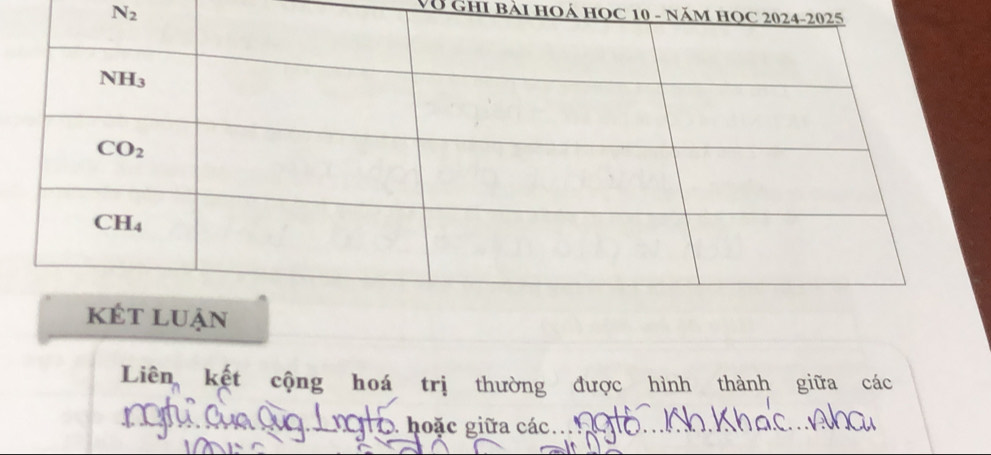 VỞ GHI BÀI HOÁ HỌC 10 - NĂM HỌC 2024-2025
N₂
NH₃
CO₂
CH₄
KẾT LUẬN
Liên kết cộng hoá trị thường được hình thành giữa các
của 1 ngtố. hoặc giữa các...ngtố...Kh.Khác...nhau